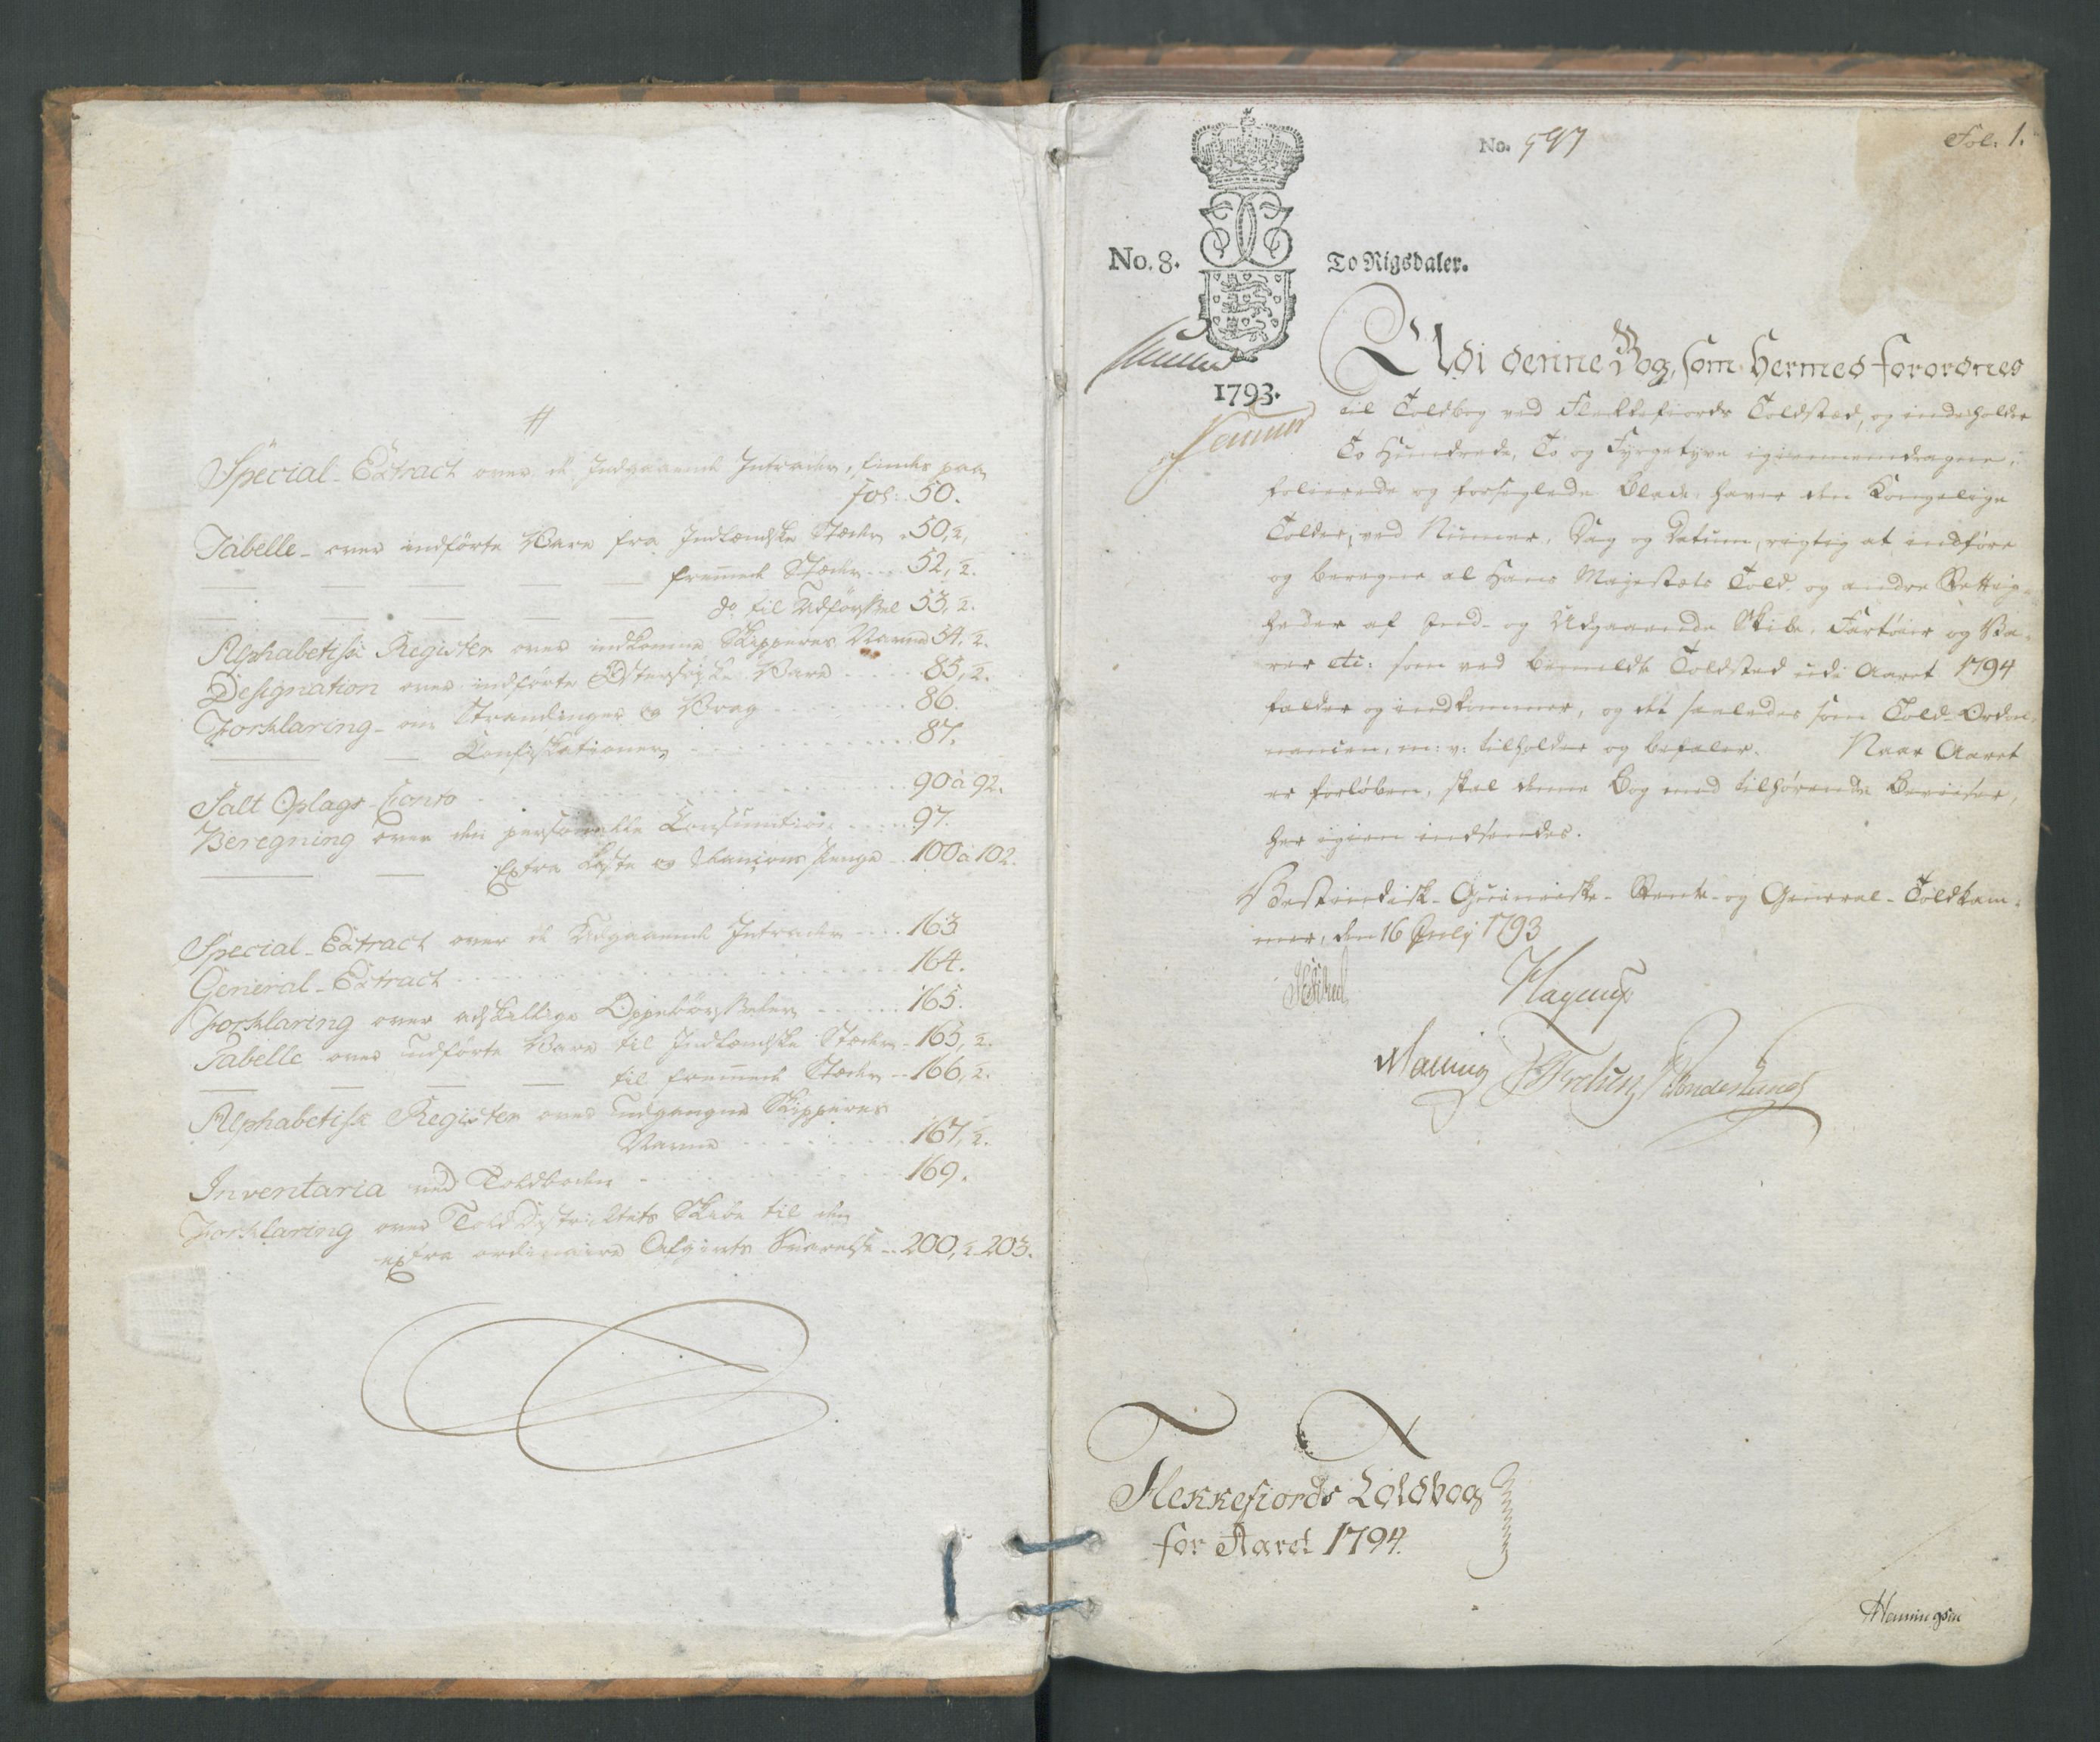 #
Special-Extract over de Indgaaende Intrader, findes paa
Fol: 50.
Tabelle over indførte Vare fra Indlændske Stæder 50,½,
fremmede Stæder 52,½.
do til Udførsel 53,½.
Alphabetisk Register over indkomne Skipperes Navne 54,½.
Designation over indførte Østersøiske Vare 85,½.
Forklaring om Strandinger og Vrag 86.
Confiskationer 87.
Salt Oplags-Conto 90 à 92.
Beregning over den personelle Consumtion 97.
Extra Laste og Penge 100 à 102.
Special-Extract over de Udgaaende Intrader 163
General-Extract 164.
Forklaring over adskillige Oppebørseler 165.
Tabelle over udførte Vare til Indlændske Stæder 165,½.
til fremmede Stæder 166,½.
Alphabetisk Register over udgangne Skipperes
Navne 167,½.
Inventaria ved Toldboden 169.
Forklaring over Told Districtets Skibe til den
extra ordinaire Afgivts Svarelse 200,½ 203.
No. 597
Fol. 1.
No. 8.
To Rigsdaler.
1793.
Udi denne Bog, som hermed forordnes
til Toldbog ved Flekkefiords Toldsted, og indeholder
To Hundrede, To og Fyrgetyve igiennemdragne,
folierede og forseglede Blade, haver den Kongelige
Tolder, ved Numer, Dag og Datum, rigtig at indføre
og beregne al Hans Majestæts Told og andre Rettig-
heder af Ind- og Udgaaende Skibe, Fartøier og Va-
rer etc: som ved bemeldte Toldsted udi Aaret 1794
falder og indkommer, og det saaledes som Told-Ordon-
nancen, m: v: tilholder og befaler. Naar Aaret
er forløben, skal denne Bog med tilhørende Beviiser,
her igien indsendes.
Vestindisk-Guineiske-Rente- og General-Toldkam-
mer, den 16 July 1793
Hagerup
Malling
Flekkefiords Toldbog
for Aaret 1794.
Henningsen